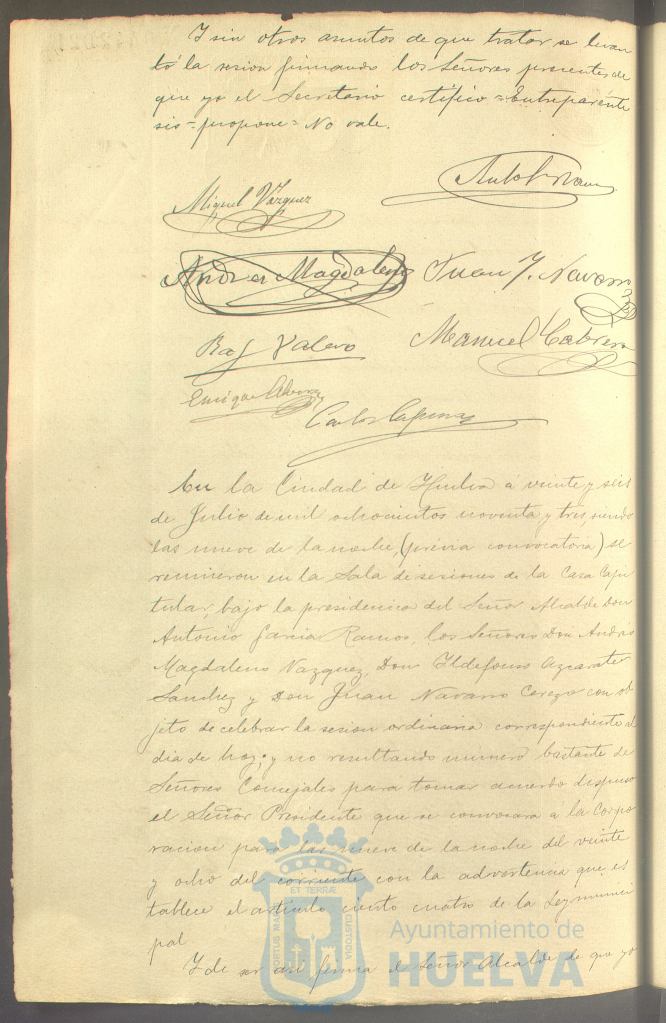 Y sin otros asuntos de que tratar se levan
tó la sesion firmando los Señores presentes de
que yo el Secretario certifico = Entreparénte
sis = propone = No vale.
Miguel Vazquez
Andres Magdaleno Juan J. Navarro
Raf Valero Manuel Cabrera
Enrique
Carlos
En la Ciudad de Huelva á veinte y seis
de Julio de mil ochocientos noventa y tres, siendo
las nueve de la noche, (prévia convocatoria) se
reunieron en la Sala de sesiones de la Casa Capi
tular, bajo la presidencia del Señor Alcalde Don
Antonio Garcia Ramos, los Señores Don Andrés
Magdaleno Vazquez, Don Ildefonso Azcarate
Sanchez y Don Juan Navarro Cerezo con ob
jeto de celebrar la sesion ordinaria correspondiente al
dia de hoy; y no resultando número bastante de
Señores Concejales para tomar acuerdo dispuso
el Señor Presidente que se convocara a la Corpo
racion para las nueve de la noche del veinte
y ocho del corriente con la advertencia que es
tablece el artículo ciento cuatro de la Ley munici
pal
Y de ser asi firma el Señor Alcalde de que yo
ET TERRÆ
PORTUS MARIS
CUSTODIA
Ayuntamiento de
HUELVA